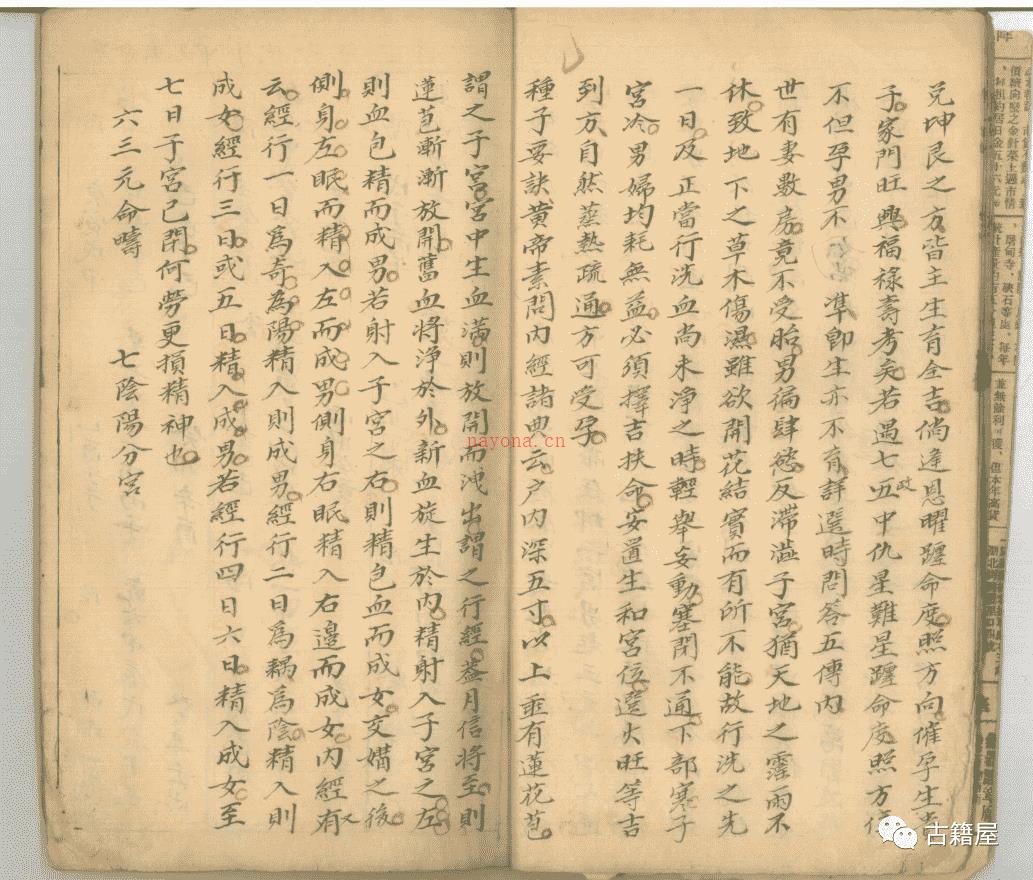 兑坤艮之方皆主生育全吉倘逢恩曜躔命度照方向催孕生
子家門旺興福祿壽考矣若遇七政五中仇星難星躔命度照方位
不但孕男不準卽生亦不育詳選時問答五傳內
世有妻數房竟不受胎男徧肆慾反滯澁子宮猶天地之霪雨不
休致地下之草木傷濕雖欲開花結實而有所不能故行洗之先
一日及正當行洗血尚未淨之時輕舉妄動塞閉不通下部寒子
宮冷男婦均耗無益必須擇吉扶命安置生和宮位選火旺等吉
到方自然蒸熱疏通方可受孕
種子要訣黃帝素問內經諸典云户內深五寸以上垂有蓮花苞
謂之子宮宮中生血滿則放開而洩出謂之行經蓋月信將至則
蓮苞漸漸放開舊血將淨於外新血旋生於內精射入子宮之左
則血包精而成男若射入子宮之右則精包血而成女交媾之後
側身左眠而精入左而成男側身右眠精入右邊而成女內經又有
云經行一日爲奇爲陽精入則成男經行二日爲耦爲陰精入則
成女經行三日或五日精入成男若經行四日六日精入成女至
七日子宮已閉何勞更損精神也
六三元命疇 七陰陽分宮
nayona.cn
古籍屋